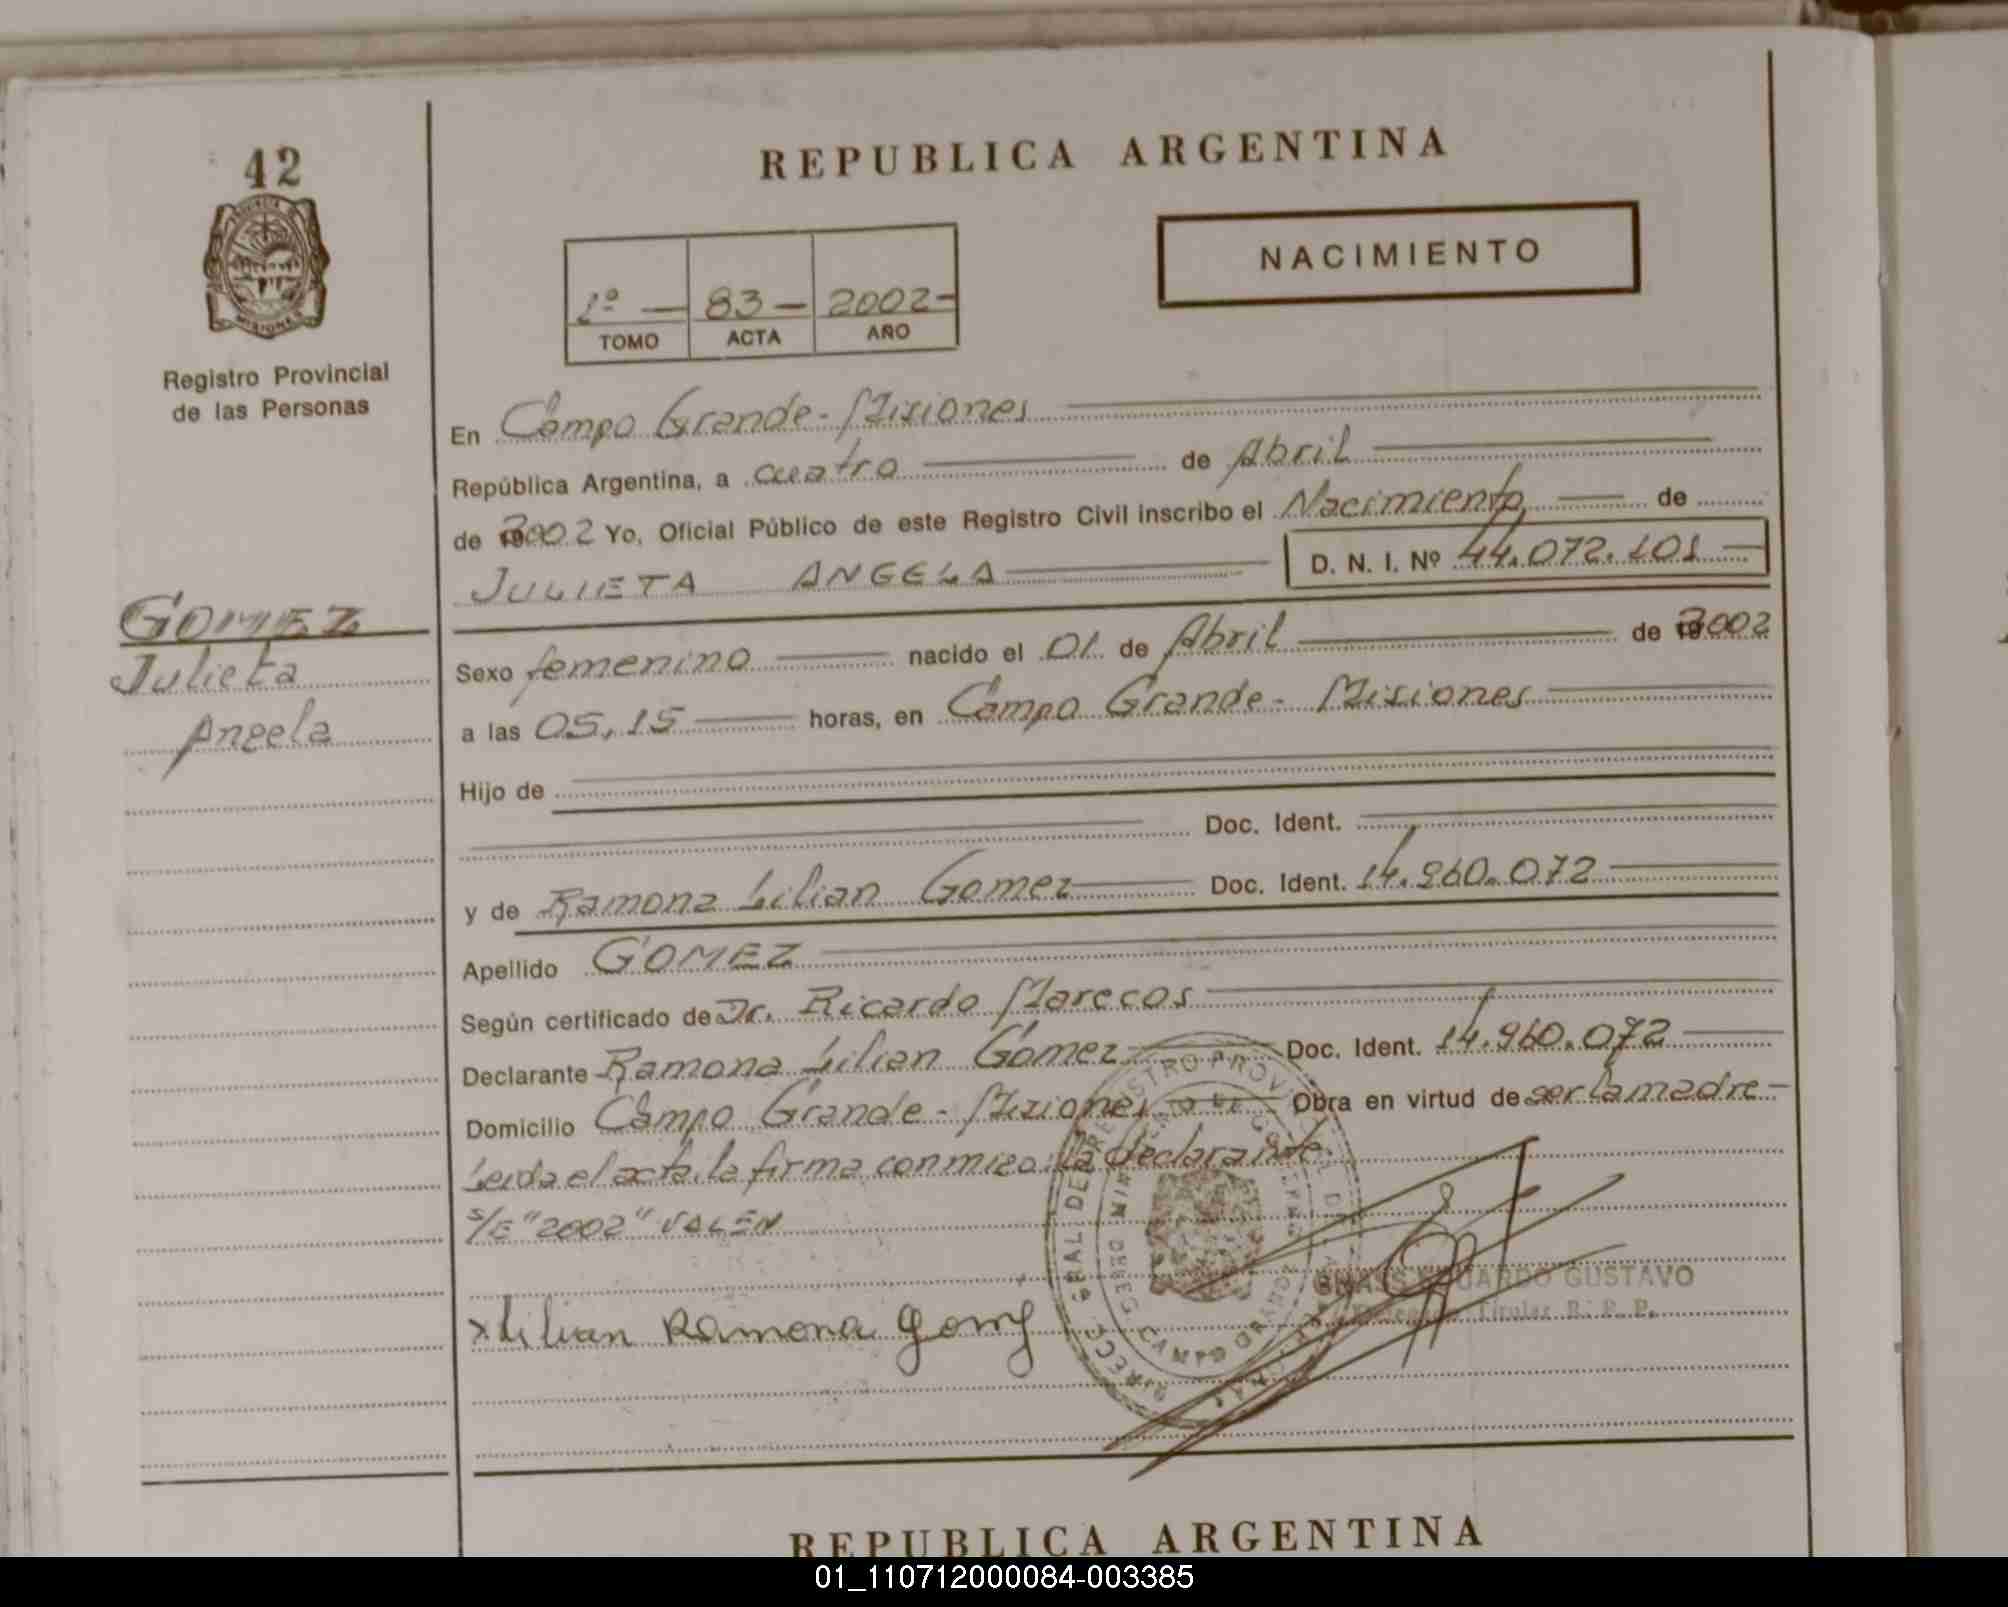 42
PROVINCIA DE
MISIONES
Registro Provincial
de las Personas
GOMEZ
Julieta
Angela
REPUBLICA ARGENTINA
NACIMIENTO
1º — 83 — 2002 -
TOMO ACTA AÑO
En Campo Grande - Misiones
República Argentina, a cuatro de Abril
de 2002 Yo, Oficial Público de este Registro Civil inscribo el Nacimiento de
JULIETA ANGELA D. N. I. Nº 44.072.101
Sexo femenino nacido el 01 de Abril de 2002
a las 05,15 horas, en Campo Grande - Misiones
Hijo de
Doc. Ident.
y de Ramona Lilian Gomez Doc. Ident. 14.960.072
Apellido GOMEZ
Según certificado de Dr. Ricardo Marecos
Declarante Ramona Lilian Gomez Doc. Ident. 14.960.072
Domicilio Campo Grande - Misiones Obra en virtud de ser la madre -
Leida el acta, la firma conmigo la declarante.
S/E "2002" VALEN
x Lilian Ramona Gomez
EDUARDO GUSTAVO
Titular R. P. P.
CAMPO GRANDE
REPUBLICA ARGENTINA
01_110712000084-003385